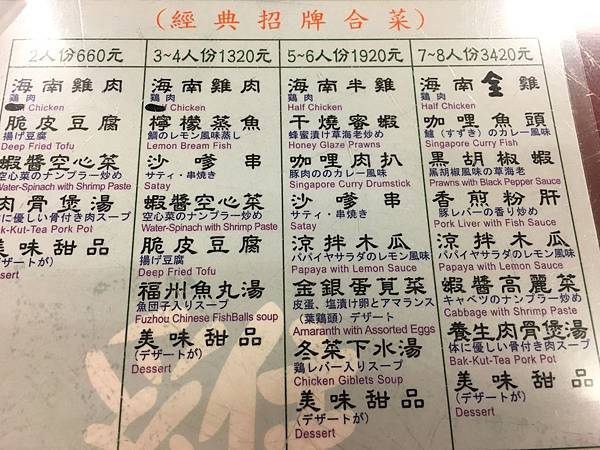 (經典招牌合菜)
2人份660元
海南雞肉
鶏肉
Chicken
脆皮豆腐
揚げ豆腐
Deep Fried Tofu
蝦醬空心菜
空心菜のナンプラー炒め
Water-Spinach with Shrimp Paste
肉骨煲湯
体に優しい骨付き肉スープ
Bak-Kut-Tea Pork Pot
美味甜品
(デザートが)
Dessert
3~4人份1320元
海南雞肉
鶏肉
Chicken
檸檬蒸魚
鯛のレモン風味蒸し
Lemon Bream Fish
沙嗲串
サティ・串焼き
Satay
蝦醬空心菜
空心菜のナンプラー炒め
Water-Spinach with Shrimp Paste
脆皮豆腐
揚げ豆腐
Deep Fried Tofu
福州魚丸湯
魚団子入りスープ
Fuzhou Chinese FishBalls soup
美味甜品
(デザートが)
Dessert
5~6人份1920元
海南半雞
鶏肉
Half Chicken
干燒蜜蝦
蜂蜜漬け草海老炒め
Honey Glaze Prawns
咖哩肉扒
豚肉ののカレー風味
Singapore Curry Drumstick
沙嗲串
サティ・串焼き
Satay
涼拌木瓜
パパイヤサラダのレモン風味
Papaya with Lemon Sauce
金銀蛋莧菜
皮蛋、塩漬け卵とアマランス
(葉鶏頭)デザート
Amaranth with Assorted Eggs
冬菜下水湯
鶏レバー入りスープ
Chicken Giblets Soup
美味甜品
(デザートが)
Dessert
7~8人份3420元
海南全雞
鶏肉
Half Chicken
咖哩魚頭
鱸(すずき)のカレー風味
Singapore Curry Fish
黑胡椒蝦
黒胡椒風味の草海老
Prawns with Black Pepper Sauce
香煎粉肝
豚レバーの香り炒め
Pork Liver with Fish Sauce
涼拌木瓜
パパイヤサラダのレモン風味
Papaya with Lemon Sauce
蝦醬高麗菜
キャベツのナンプラー炒め
Cabbage with Shrimp Paste
養生肉骨煲湯
体に優しい骨付き肉スープ
Bak-Kut-Tea Pork Pot
美味甜品
(デザートが)
Dessert